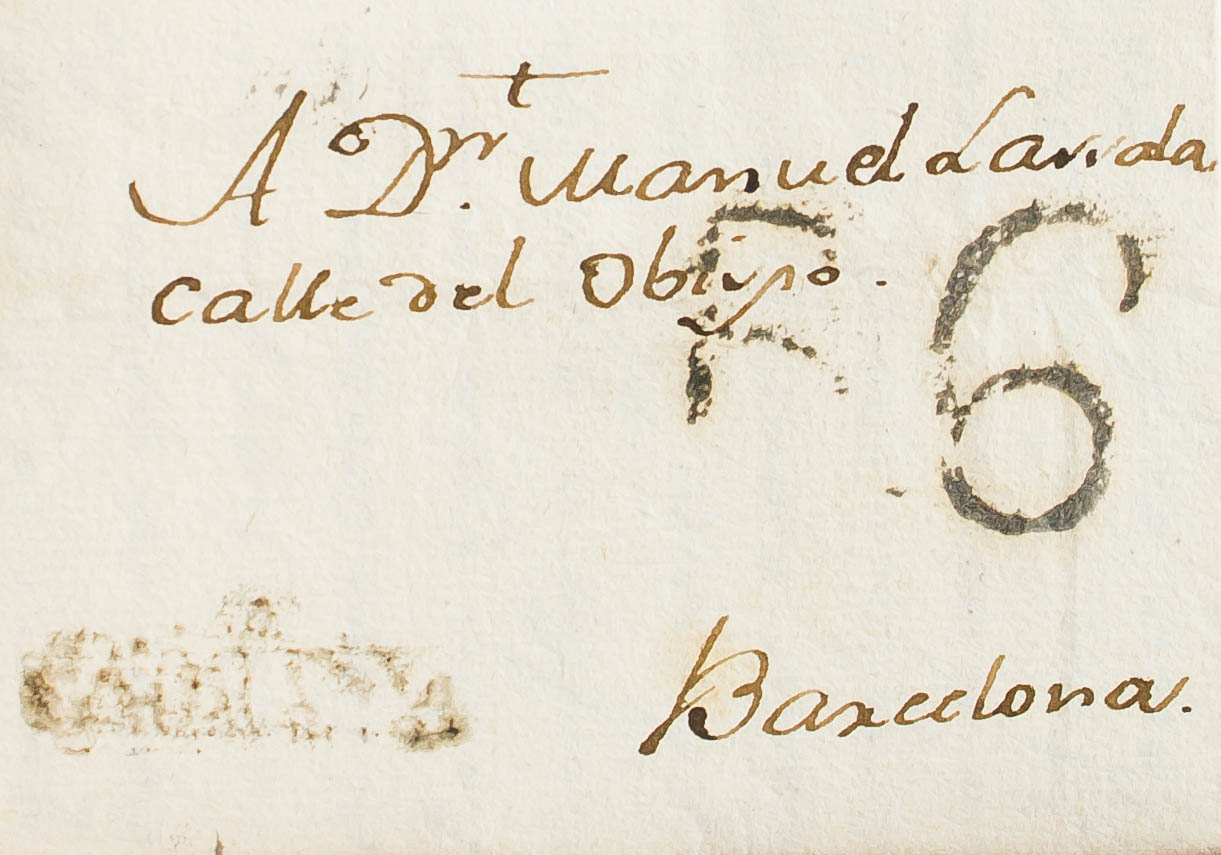 t
A Dn. Manuel Larrola
calle del Obispo.
R 6
Barcelona.